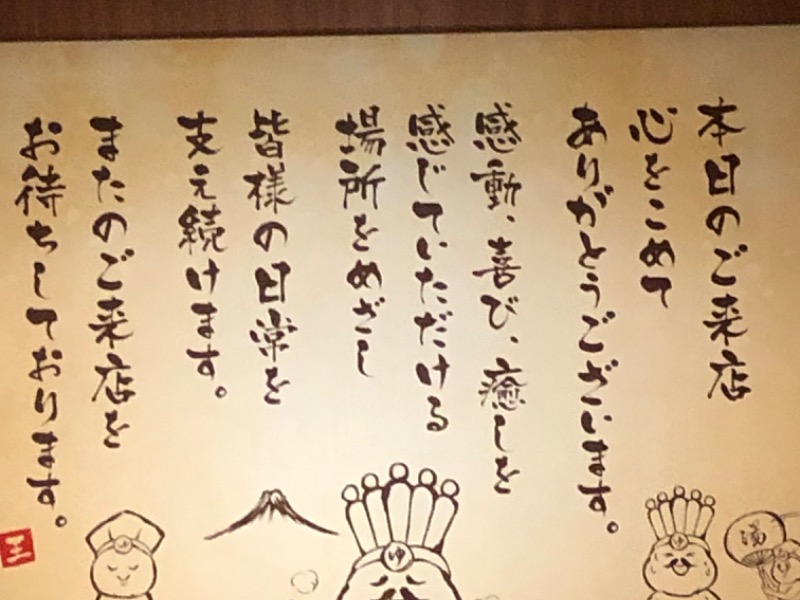 本日のご来店
心をこめて
ありがとうございます。
感動、喜び、癒しを
感じていただける
場所をめざし
皆様の日常を
支え続けます。
またのご来店を
お待ちしております。
三
ゆ
ゆ
湯